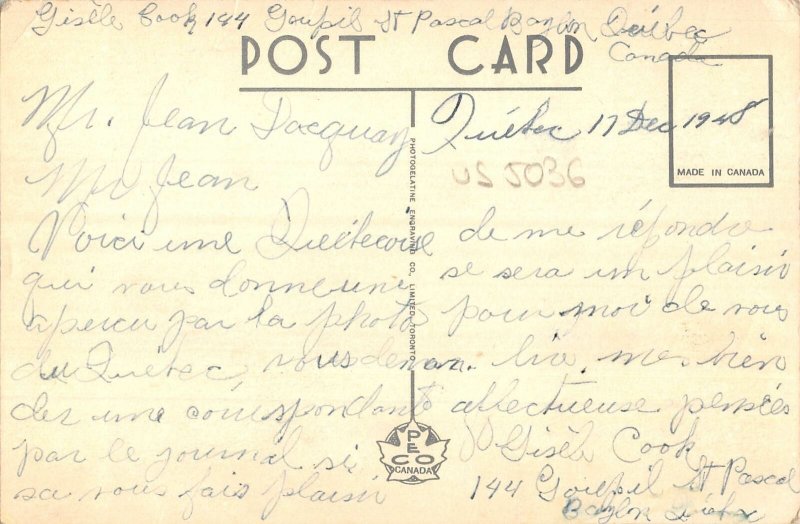 Gisèle Cook 144 Goupil St Pascal Baylon Québec
Canada
POST CARD
Mr. Jean Jacquay
Québec 17 Dec 1948
MADE IN CANADA
US 5036
Mr Jean
Voici une Québecoise
qui vous donne une
apercu par la photo
du Québec, vous deman-
der une correspondante
par le journal si
sa vous fais plaisir
PHOTOGELATINE ENGRAVING CO. LIMITED. TORONTO
de me répondre
se sera un plaisir
pour moi de vous
lire, mes bien
affectueuse pensées
Gisèle Cook
144 Goupil St Pascal
Baylon Québec
PECO
CANADA